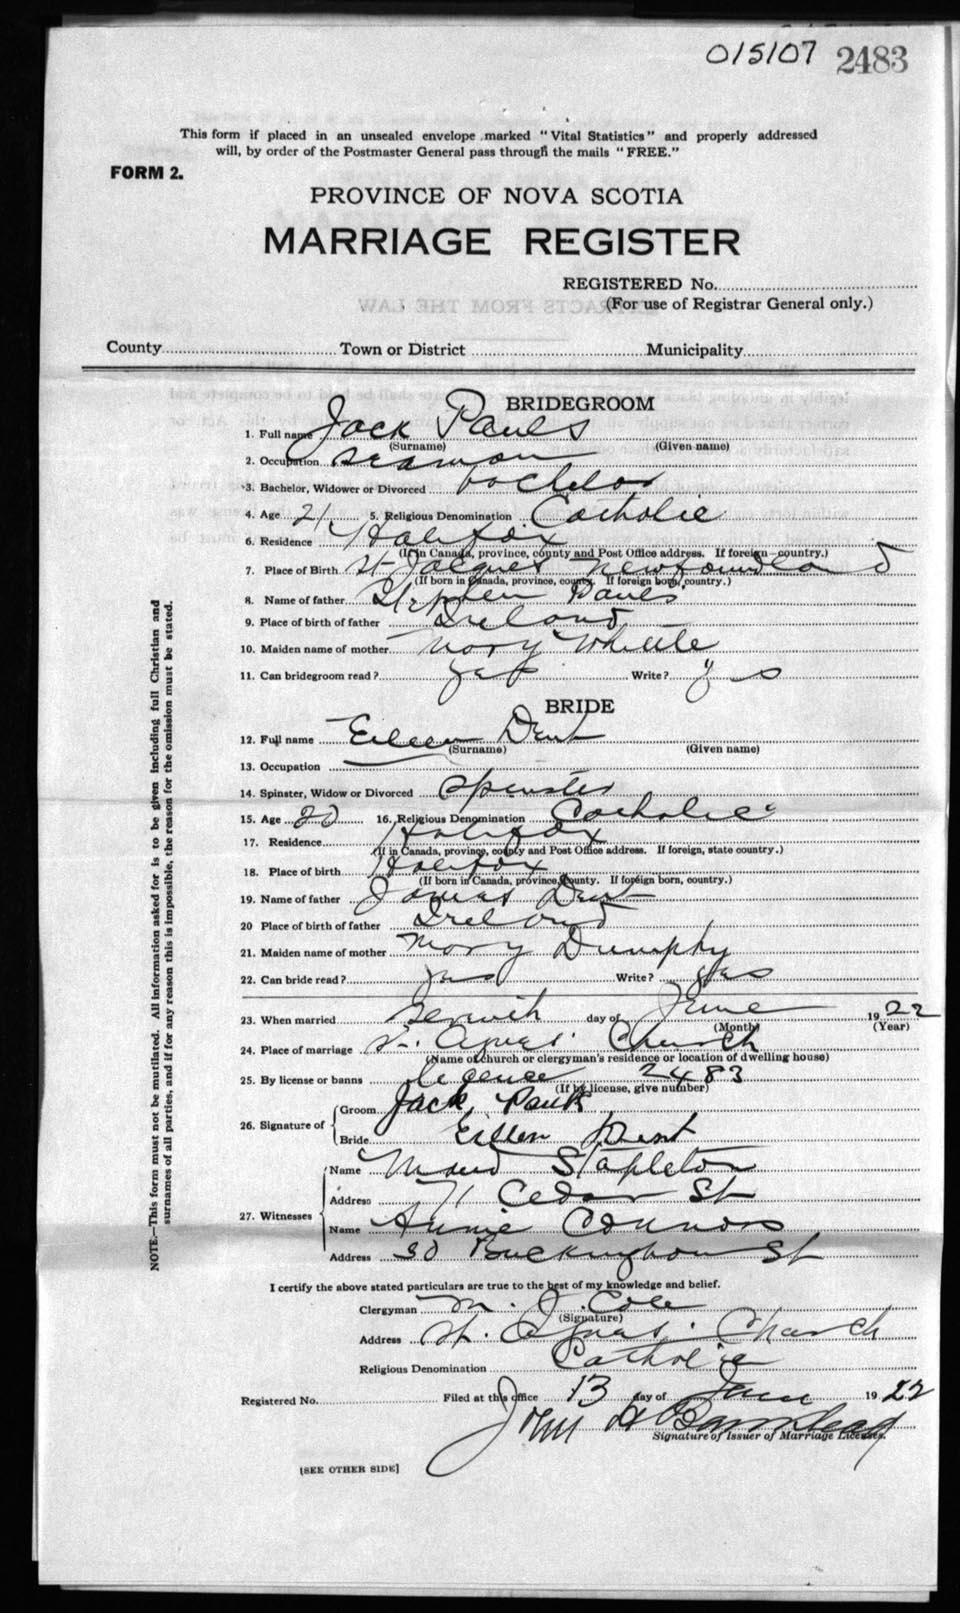 015107 2483
This form if placed in an unsealed envelope marked "Vital Statistics" and properly addressed
will, by order of the Postmaster General pass through the mails "FREE."
FORM 2.
PROVINCE OF NOVA SCOTIA
MARRIAGE REGISTER
REGISTERED No.
(For use of Registrar General only.)
County Town or District Municipality
BRIDEGROOM
1. Full name Jack Pauls
(Surname) (Given name)
2. Occupation seaman
3. Bachelor, Widower or Divorced bachelor
4. Age 21 5. Religious Denomination Catholic
6. Residence Halifax
(If in Canada, province, county and Post Office address. If foreign country.)
7. Place of Birth St Jacques Newfoundland
(If born in Canada, province, county. If foreign born, country.)
8. Name of father Stephen Pauls
9. Place of birth of father Ireland
10. Maiden name of mother Mary Whittle
11. Can bridegroom read? yes Write? yes
BRIDE
12. Full name Eileen Dent
(Surname) (Given name)
13. Occupation
14. Spinster, Widow or Divorced spinster
15. Age 20 16. Religious Denomination Catholic
17. Residence Halifax
(If in Canada, province, county and Post Office address. If foreign, state country.)
18. Place of birth Halifax
(If born in Canada, province, county. If foreign born, country.)
19. Name of father James Dent
20 Place of birth of father Ireland
21. Maiden name of mother Mary Dumphy
22. Can bride read? yes Write? yes
23. When married day of June 1922
(Month) (Year)
24. Place of marriage St. Agnes' Church
(Name of church or clergyman's residence or location of dwelling house)
25. By license or banns 2483
(If by license, give number)
26. Signature of Groom Jack Pauls
Bride Eileen Dent
27. Witnesses Name Maud Stapleton
Address 71 Cedar St
Name Annie Connors
Address 30 Buckingham St
I certify the above stated particulars are true to the best of my knowledge and belief.
Clergyman M. J. Cole
(Signature)
Address St. Agnes' Church
Religious Denomination Catholic
Registered No. Filed at this office 13 day of June 1922
John H Barnstead
Signature of Issuer of Marriage Licenses.
[SEE OTHER SIDE]
NOTE.—This form must not be mutilated. All information asked for is to be given including full Christian and
surnames of all parties, and if for any reason this is impossible, the reason for the omission must be stated.